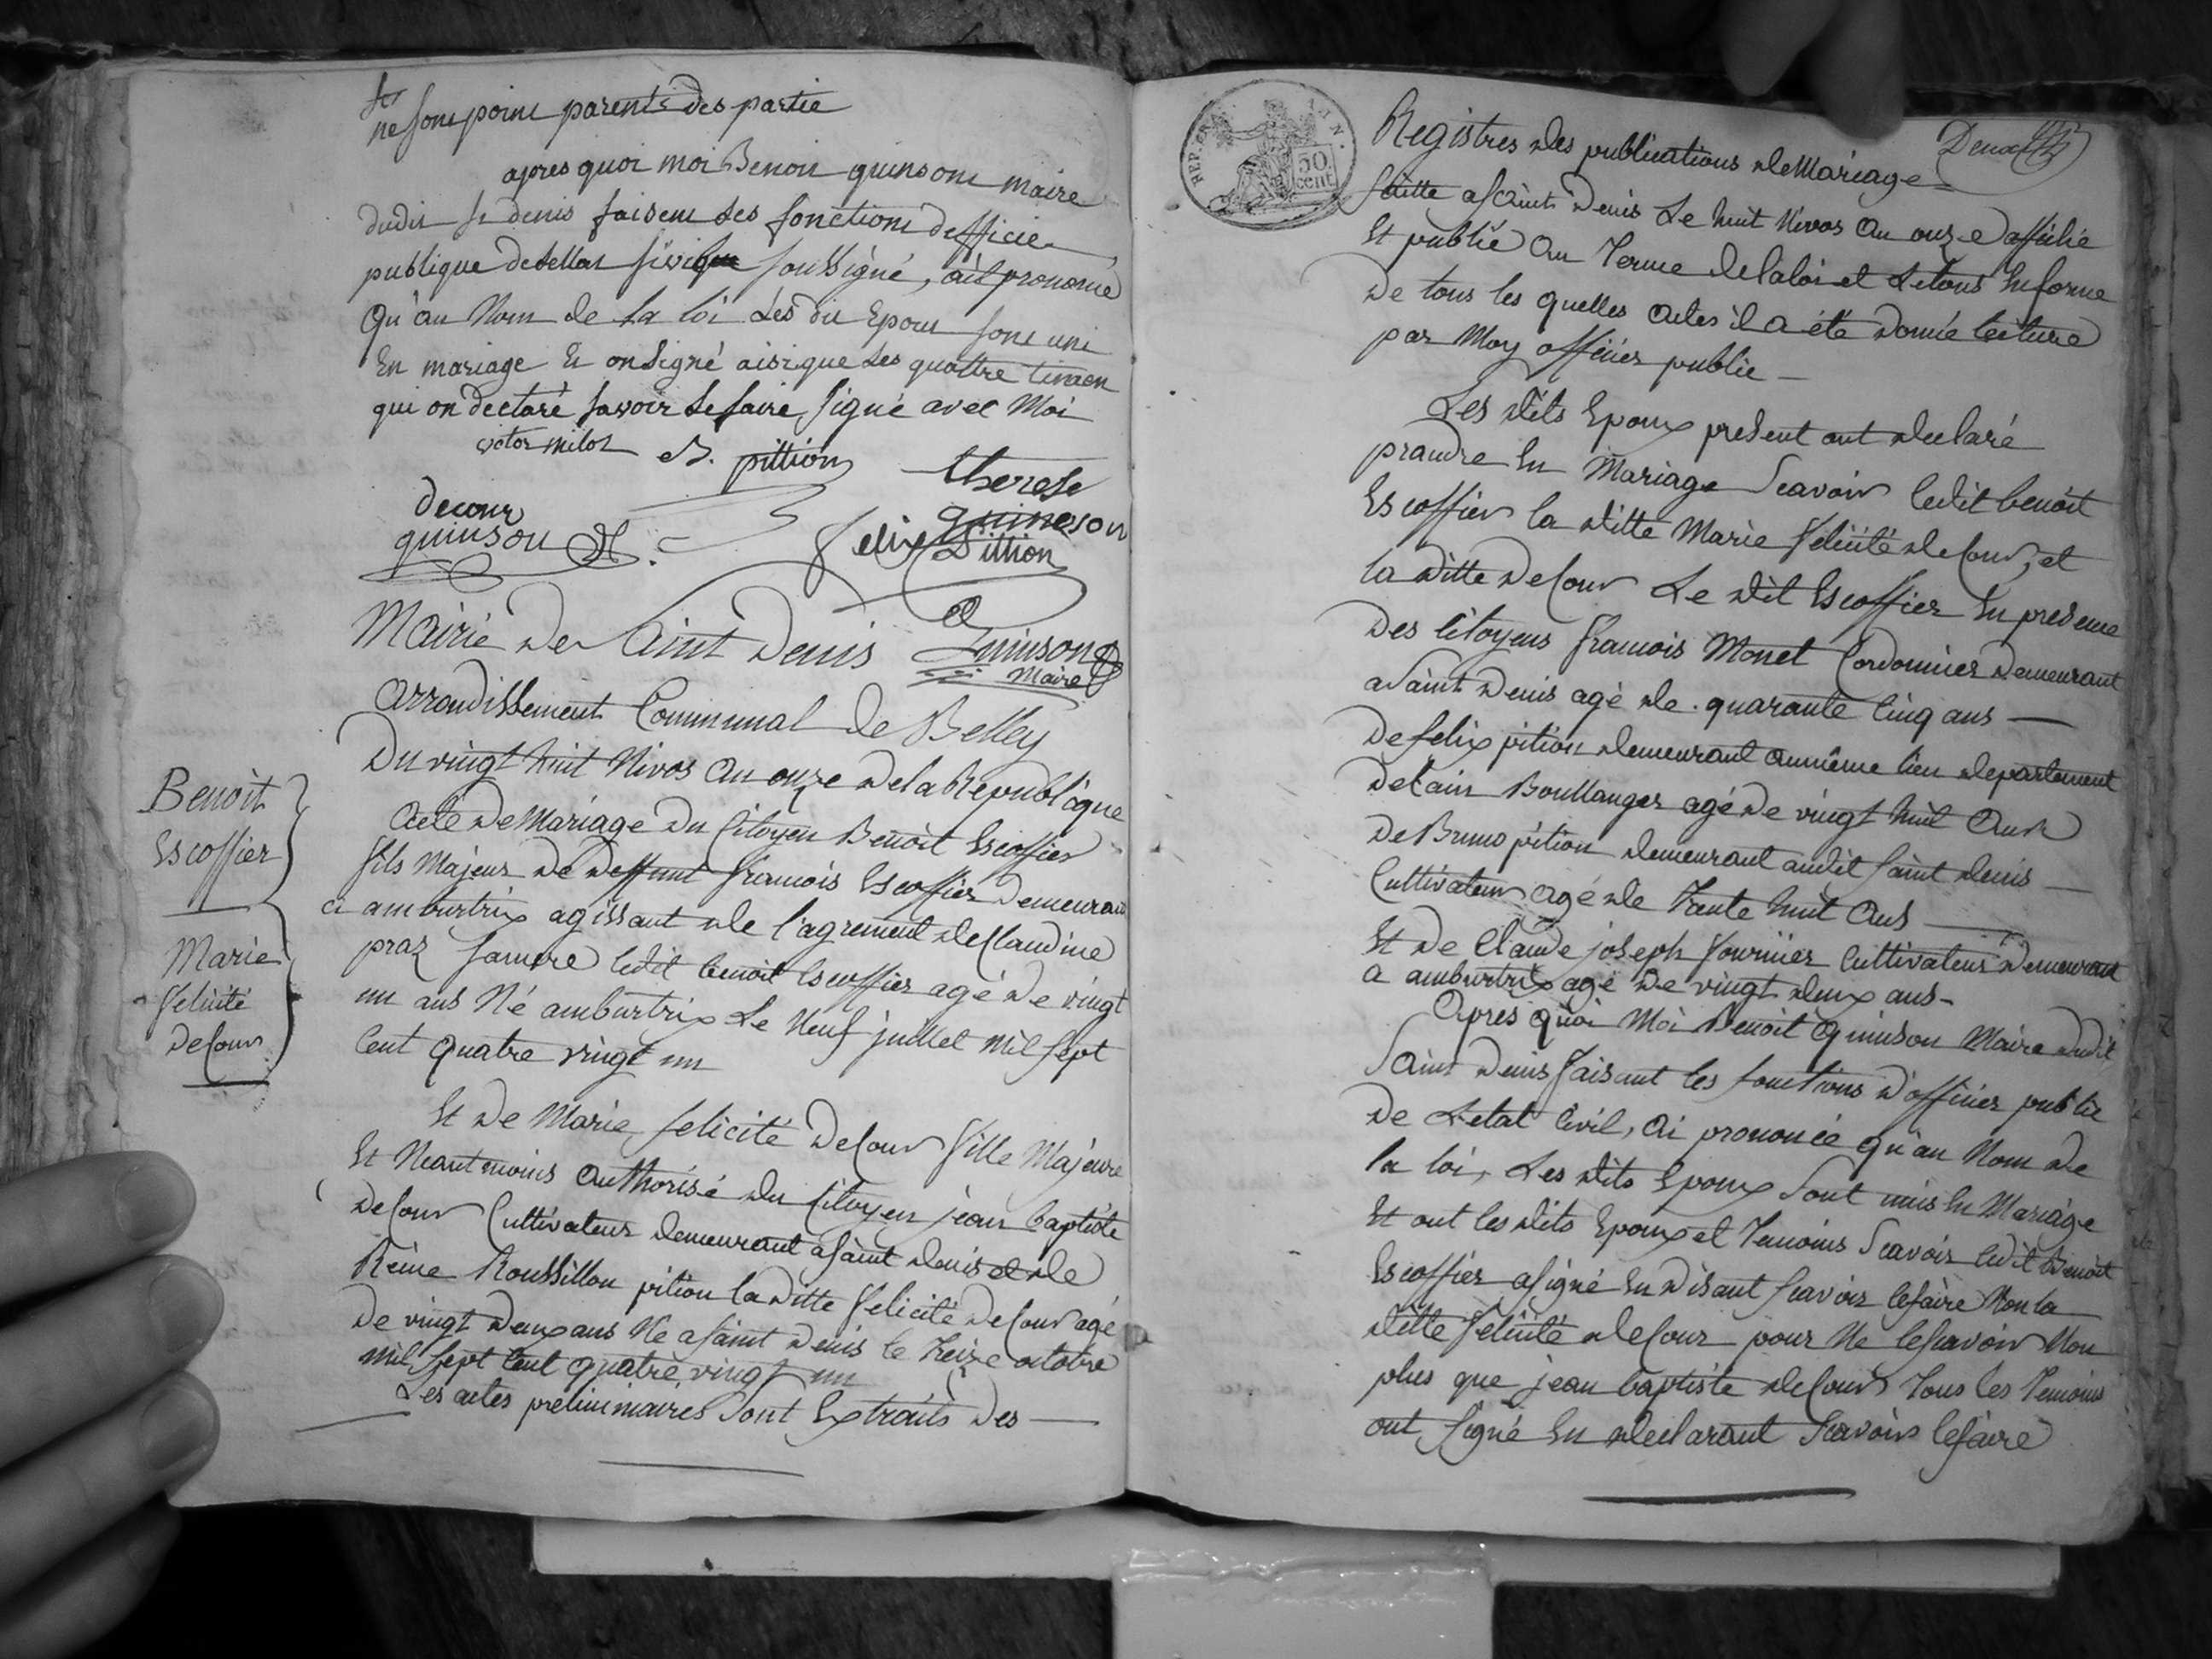 frs
ne sont point parents des partie
apres quoi moi Benoit quinsont maire
dudit st denis faisent les fonctions defficier
publique de lettat sivique soussigné, ait prononcé
Qu'au Nom de la loi Les dit Epoux sont uni
En mariage Et on signé aisi que Les quattre timoen
qui on déclaré savoir Le faire signé avec Moi
victor milot B. pittion therese
decour quineson
quinson felix Pittion
Mairie De Saint Denis Quinson
Maire
Arrondissement Communal de Belley
Du vingt huit Nivos an onze De la Republique
Acte De Mariage Du Citoyen Benoit Escoffier
fils Majeur De Deffunt francois Escoffier Demeurant
a amburtrix agissant de l'agrement de Claudine
praz samere ledit benoit Escoffier agé De vingt
un ans Né amburtrix Le Neuf juillet Mil sept
Cent quatre vingt un
Et De Marie felicité Decour fille Majeure
Et Neantmoins authorisé du Citoyen jean baptiste
Decour Cultivateur demeurant a saint denis et de
Reine Roussillon pition la Ditte felicité Decour agé
De vingt Deux ans Né a saint Denis le treize octobre
mil sept Cent quatre vingt un
Les actes preliminaires sont Extraits Des
Benoit
Escoffier
Marie
felicité
Decour
REP. FRAN.
50
cent
Registres des publications de Mariage
faitte a saint Denis Le huit Nivos an onze affiché
Et publié au Terme de la loi et Le tous En forme
De tous les quelles actes il a été Donné lecture
par Moy officier public
Les dits Epoux present ont declaré
prandre En Mariage Scavoir ledit benoit
Escoffier la ditte Marie felicité decour, et
la Ditte Decour Le dit Escoffier En presence
Des Citoyens francois Monet Cordonnier Demeurant
a saint Denis agé de quarante Cinq ans
De felix pition demeurant au même lieu departement
De l'ain Boullanger agé De vingt huit ans
De Bruno pition demeurant audit saint denis
Cultivateur agé de trante huit ans
Et De Claude joseph fournier Cultivateur Demeurant
a amburtrix agé De vingt deux ans
Apres quoi Moi Benoit quinson Maire dudit
Saint Denis faisant les fonctions D'officier public
De L'etat Civil, ai prononcé qu'au Nom De
la loi, Les dits Epoux sont unis En Mariage
Et ont les dits Epoux et Temoins Scavoir ledit Benoit
Escoffier a signé En Disant scavoir le faire Non la
ditte felicité decour pour Ne le scavoir Non
plus que jean baptiste decour tous les Temoins
ont signé En declarant Scavoir le faire